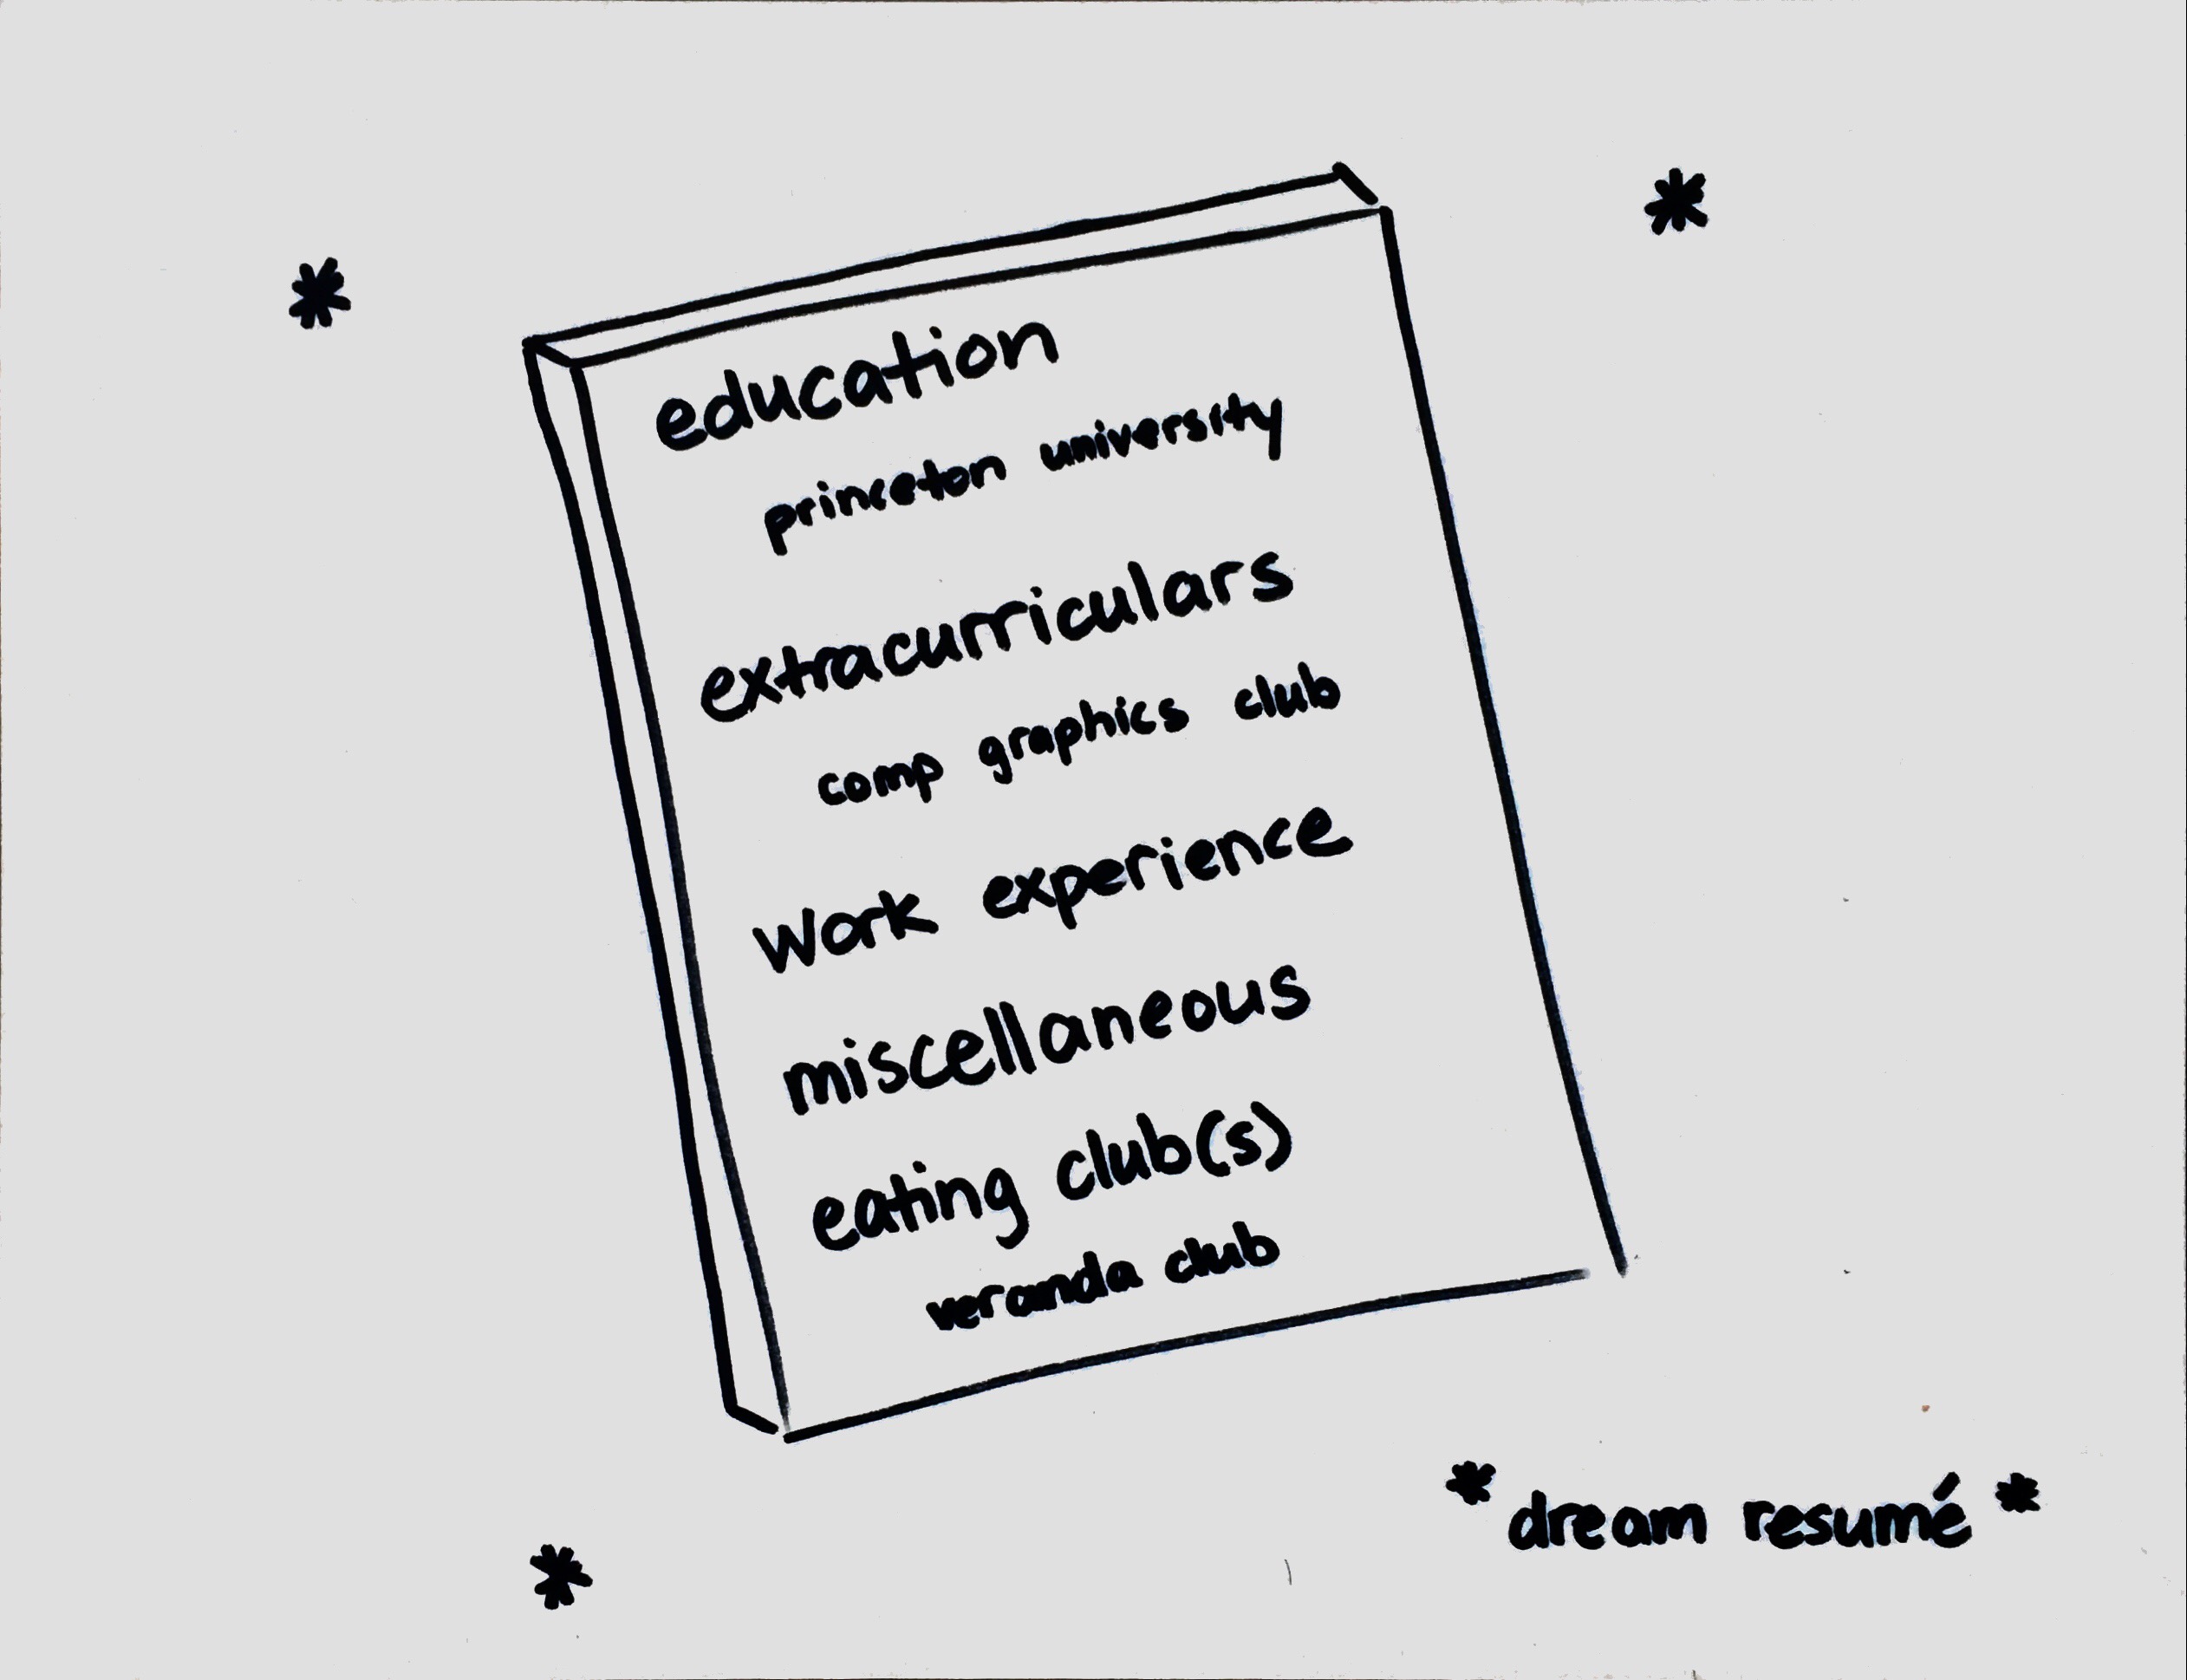 education
princeton university
extracurriculars
comp graphics club
work experience
miscellaneous
eating club(s)
veranda club
*dream resumé*